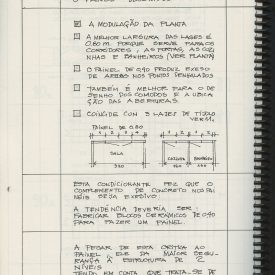 A MODULAÇÃO DA PLANTA
A MELHOR LARGURA DAS LAJES É
0.80 M PORQUE SERVE PARA OS
CORREDORES, AS PORTAS, AS COZI
NHAS E BANHEIROS (VER PLANTA)
O PAINEL DE 0,40 PRODUZ EXCESO
DE ARESO NOS PONTOS
TAMBÉM É MELHOR PARA O DE
SENHO DOS COMODOS E A UBICA
ÇÃO DAS ABERTURAS.
COINCIDE COM 3 LAJES DE TIJOLO
PAINEL DE 0.80
SALA
COZINHA
BANHEIRO
320
ESTA CONDICIONANTE FEZ QUE O
COMPLEMENTO DE CONCRETO NOS PAI
NÉIS SEJA
A TENDÊNCIA DEVERIA SER:
FABRICAR BLOCOS CERAMICOS DE 0.40
PARA FAZER UM PAINEL
A PESAR DE ESTA CRITICA AO
PAINEL, ELE DA MAIOR SEGU-
RANÇA À ESTRUTURA DE 2
NÍVEIS
TENDO EM CONTA QUE TRATA-SE DE